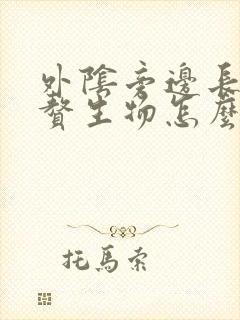 外陰旁邊長
贅生物怎麼
托馬索